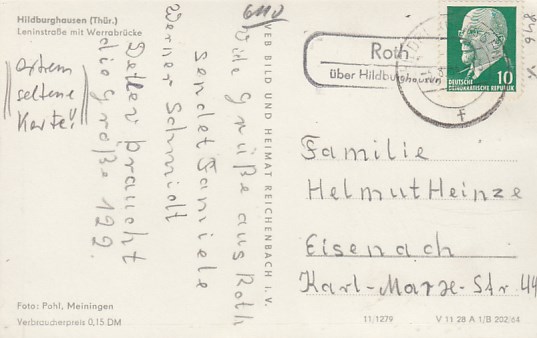 Hildburghausen (Thür.)
Leninstraße mit Werrabrücke
extrem
seltene
Karte!
Viele Grüße aus Roth
sendet Familie
Werner Schmidt
Detlev braucht
die Größe 122.
Foto: Pohl, Meiningen
Verbraucherpreis 0,15 DM
VEB BILD UND HEIMAT REICHENBACH I. V.
Roth
über Hildburghausen
DEUTSCHE
DEMOKRATISCHE REPUBLIK
10
846
Familie
Helmut Heinze
Eisenach
Karl-Marx-Str 44
11/1279
V 11 28 A 1/B 202/64